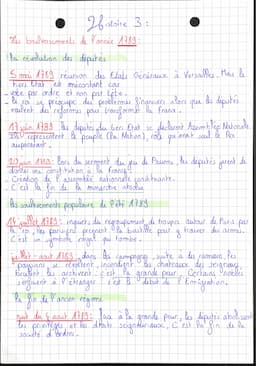 Histoire 3 :
Les bouleversements de l'année 1789.
La révolution des députés
5 mai 1789 réunion des Etats Généraux à Versailles. Mais le
tiers Etat est mécontent car
- vote par ordre et non par tête.
- le roi se préoccupe des problèmes financiers alors que les députés
veulent des réformes pour transformer la France.
17 juin 1789 les députés du tiers Etat se déclarent Assemblée Nationale
le peuple (la Nation), cela qu'avant seul le Roi
auparavant.
20 juin 1789 : lors du serment du jeu de Paume, les députés jurent de
donner une constitution à la France.
- Création de l'assemblée nationale constituante.
- C'est la fin de la monarchie absolue
Les soulèvements populaires de l'été 1789
14 juillet 1789 : inquiets du regroupement de troupes autour de Paris par
le roi, les parisiens prennent la bastille pour y trouver des armes.
C'est un symbole royal qui tombe.
juillet - août 1789, dans les campagnes, suite à la rumeur, les
paysans se révoltent, incendient les châteaux des seigneurs,
brulent les archives : c'est la grande peur. Certains nobles
s'enfuient à l'étranger : c'est le début de l'Emigration.
La fin de l'ancien régime
nuit du 4 août 1789 : face à la grande peur, les députés abolissent
les privilèges et les droits seigneuriaux. C'est la fin de la
société d'ordres.